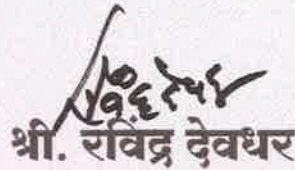 श्री. रविंद्र देवधर